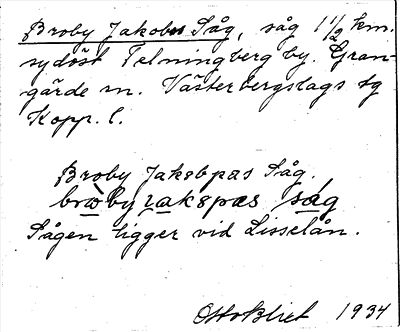 Broby Jakobs Såg, såg 1 1/2 km.
sydöst Telningberg by. Gran-
gärde sn. Västerbergslags tg
Kopp. l.
Broby Jakobpas Såg.
broby jakspas såg
Sågen ligger vid Lisselån.
Otto Blixt 1934